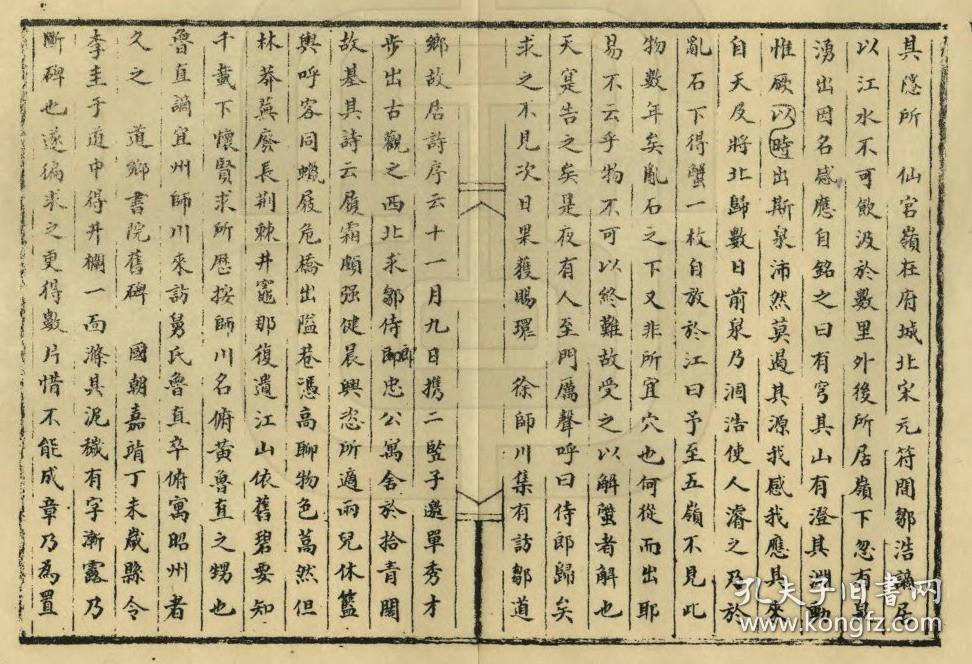 其隱所　仙宫嶺在府城北宋元符間鄒浩謫居
以江水不可飲汲於數里外後所居嶺下忽有泉
湧出因名感應自銘之曰有穹其山有澄其淵勳
惟厥以時出斯泉沛然莫遏其源我感我應其來
自天及將北歸數日前泉乃涸浩使人濬之乃於
亂石下得蟹一枚自放於江曰予至五嶺不見此
物數年矣亂石之下又非所宜穴也何從而出耶
易不云乎物不可以終難故受之以解蟹者解也
天寔告之矣是夜有人至門厲聲呼曰侍郎歸矣
求之不見次日果獲賜環　徐師川集有訪鄒道
鄉故居詩序云十一月九日携二竪子邀單秀才
步出古觀之西北求鄒侍郎忠公寓舍於拾青閣
故基其詩云履霜頗强健晨興恣所適兩兒休籃
輿呼客同蠟屐危橋出隘巷憑高聊物色萬然但
林莽蕪廢長荆棘井竈那復遺江山依舊碧要知
千載下懷賢求所歷按師川名俯黄魯直之甥也
魯直謫宜州師川來訪舅氏魯直卒俯寓昭州者
久之　道鄉書院舊碑　國朝嘉靖丁未歲縣令
李圭于道中得井欄一面滌其泥穢有字漸露乃
斷碑也遂徧求之更得數片惜不能成章乃為置
孔夫子旧书网
www.kongfz.com